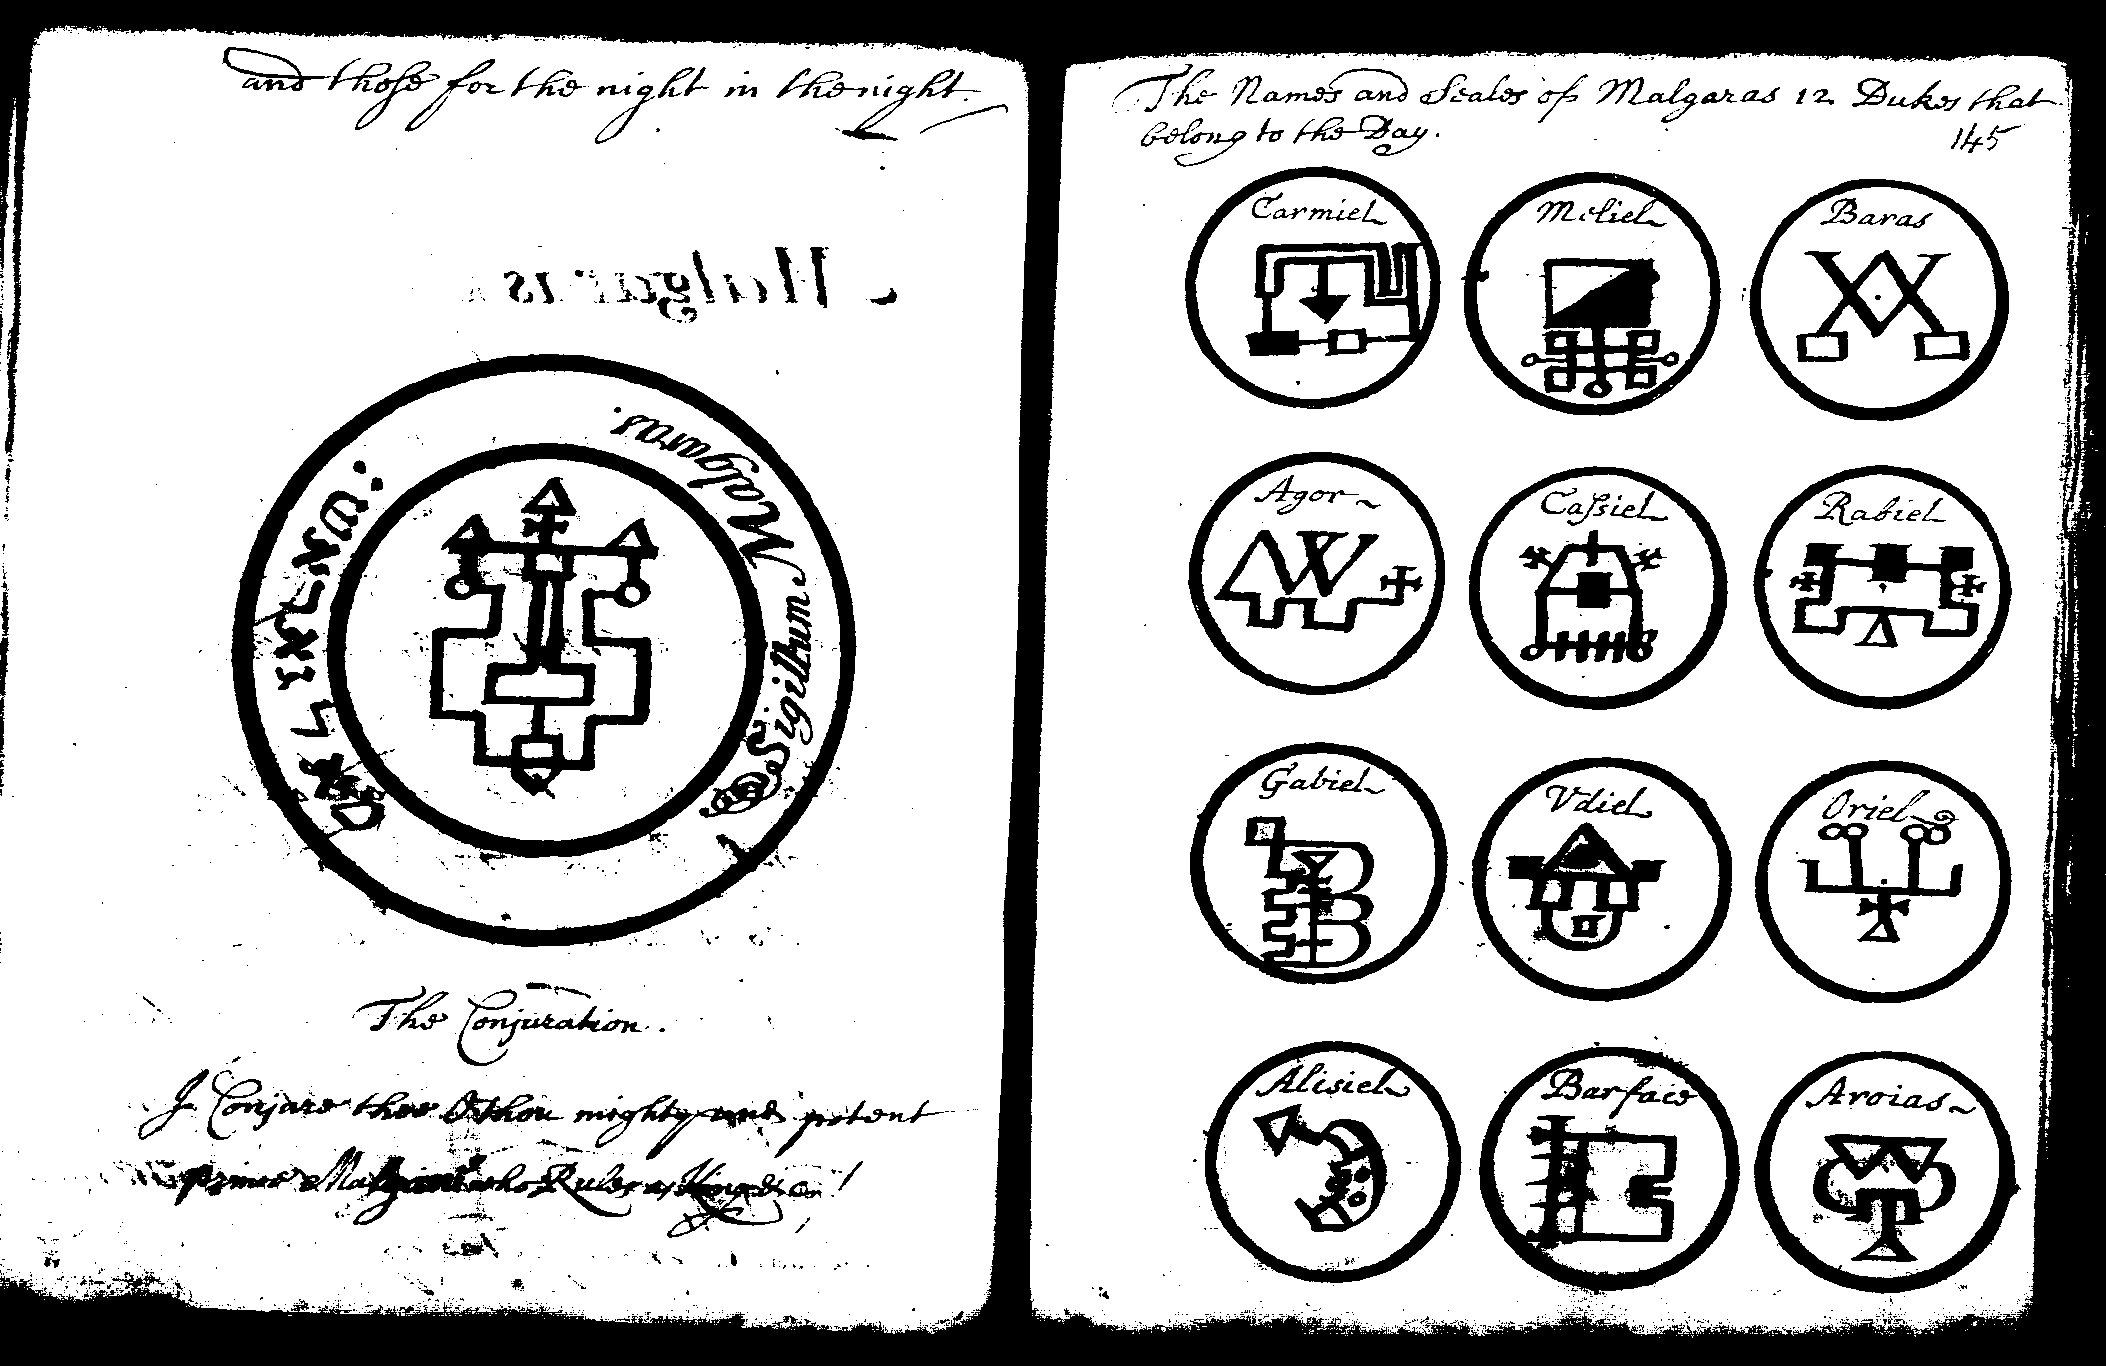 and those for the night in the night.
Malgaras
Sigillum Malgaras.
The Conjuration.
I Conjure thee O thou mighty and potent
prince Malgaras who Rules as King
The Names and Seales of Malgaras 12 Dukes that
belong to the Day.
145
Carmiel
Meliel
Baras
Agor
Caſsiel
Rabiel
Gabiel
Vdiel
Oriel
Alisiel
Barface
Aroias